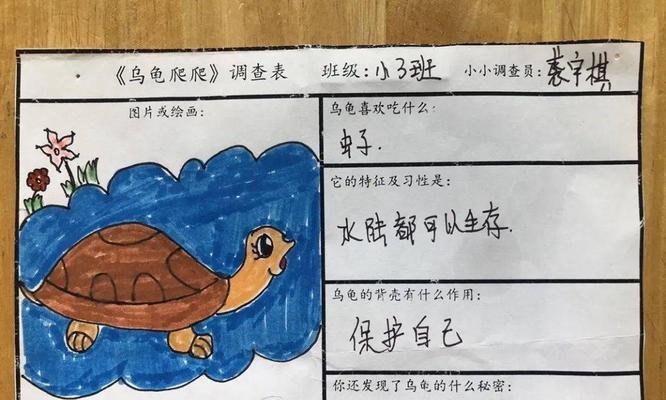 《乌龟爬爬》调查表 班级：小3班 小小调查员：宇棋
图片或绘画：
乌龟喜欢吃什么：
虫子.
它的特征及习性是：
水陆都可以生存.
乌龟的背壳有什么作用：
保护自己
你还发现了乌龟的什么秘密：